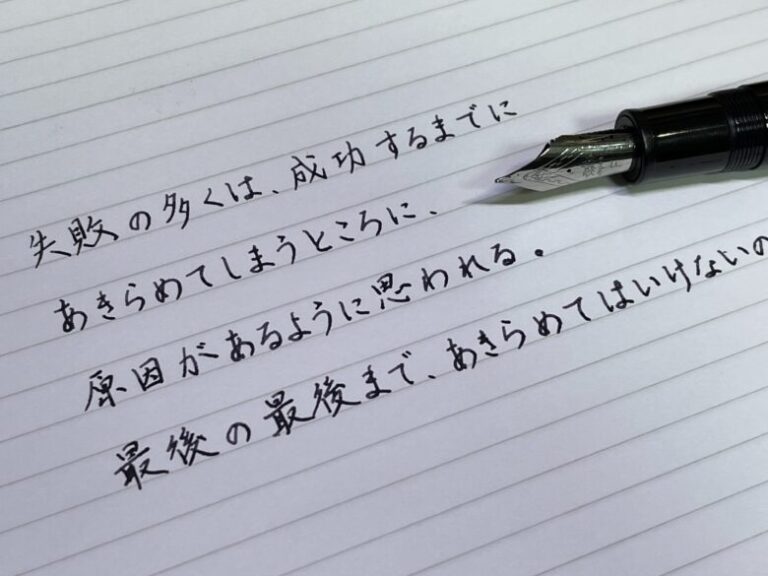 失敗の多くは、成功するまでに
あきらめてしまうところに、
原因があるように思われる。
最後の最後まで、あきらめてはいけないの